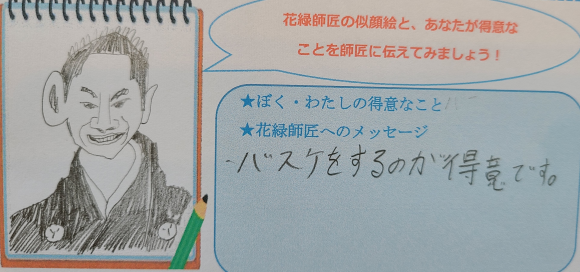 花緑師匠の似顔絵と、あなたが得意な
ことを師匠に伝えてみましょう！
★ぼく・わたしの得意なこと
★花緑師匠へのメッセージ
・バスケをするのが得意です。